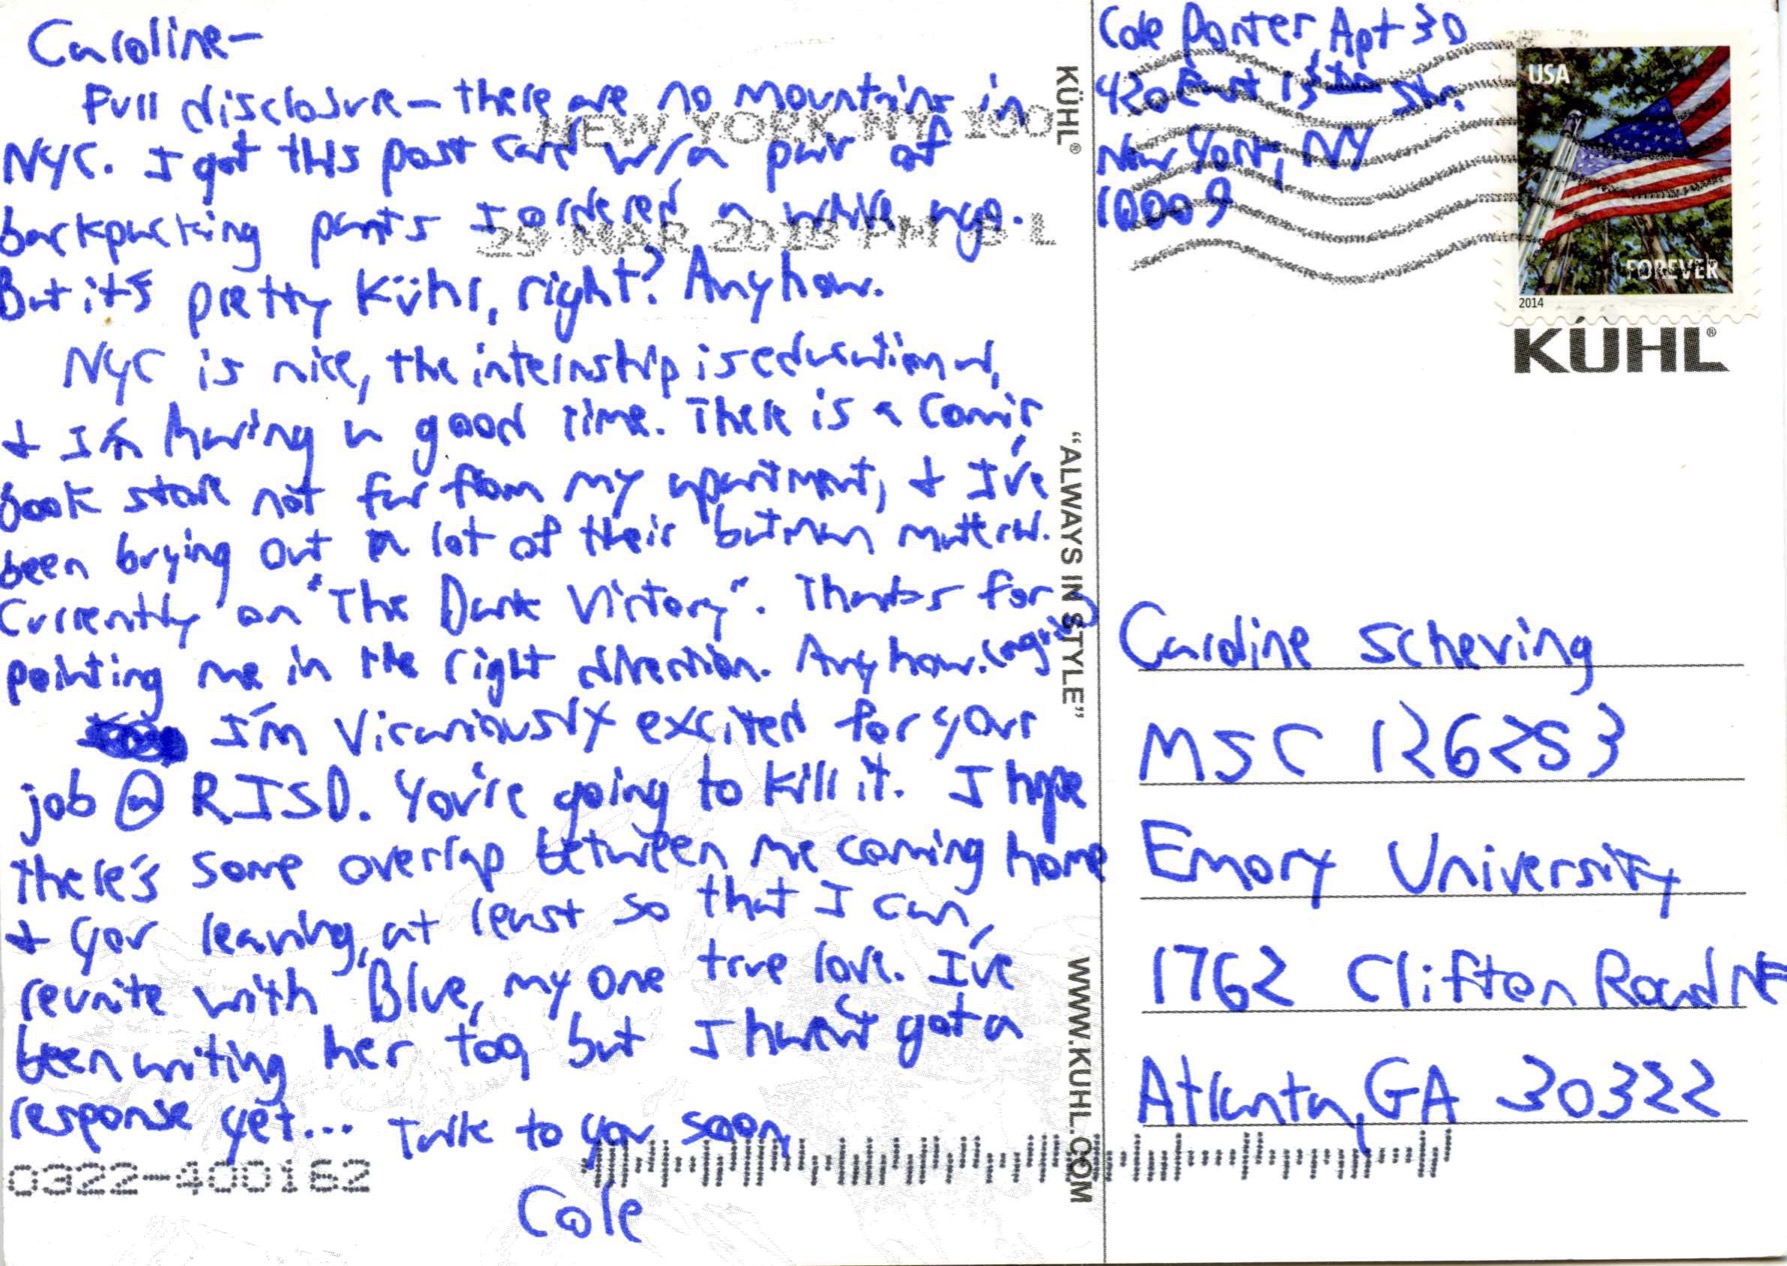 Caroline-
Full disclosure - there are no mountains in
NYC. I got this post card w/a pair of
backpacking pants I ordered a while ago.
But it's pretty Kühl, right? Anyhow.
NYC is nice, the internship is educational,
& I'm having a good time. There is a comic
book store not far from my apartment, & I've
been buying out a lot of their batman material.
Currently on "The Dark Victory". Thanks for
pointing me in the right direction. Anyhow. (again)
I'm vicariously excited for your
job @ RISD. You're going to kill it. I hope
there's some overlap between me coming home
& your leaving, at least so that I can
reunite with Blue, my one true love. I've
been writing her too, but I haven't got a
response yet... Talk to you soon,
Cole
0322-400162
KÜHL®
"ALWAYS IN STYLE"
WWW.KUHL.COM
Cole Porter, Apt 3D
420 East 13th Str.
New York, NY
10009
NEW YORK NY 100
29 MAR 2015 PM 8 L
USA
FOREVER
2014
KÜHL®
Caroline Scheving
MSC 126253
Emory University
1762 Clifton Road NE
Atlanta, GA 30322